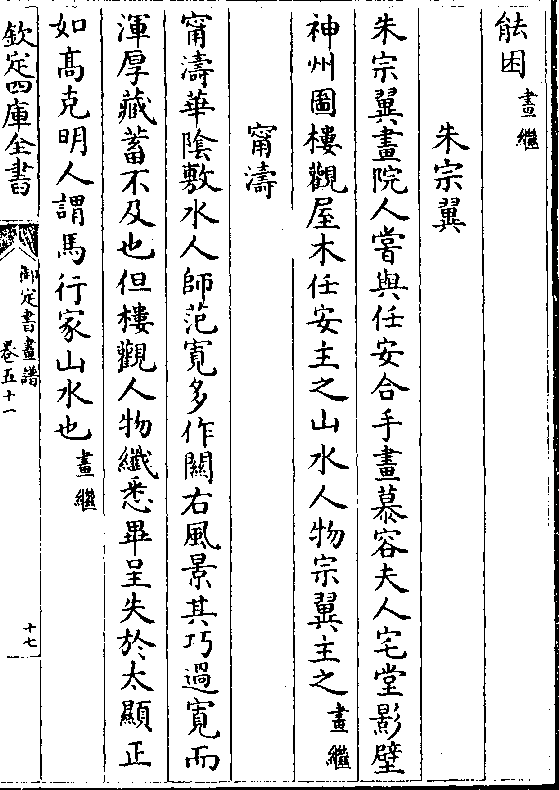 能困畫繼
朱宗翼
朱宗翼畫院人嘗與任安合手畫慕容夫人宅堂影壁
神州圖樓觀屋木任安主之山水人物宗翼主之畫繼
甯濤
甯濤華隂敷水人師范寛多作關右風景其巧過寛而
渾厚藏蓄不及也但樓觀人物纖悉畢呈失於太顯正
如髙克明人謂馬行家山水也畫繼
欽定四庫全書
御定書畫譜
卷五十一
十七